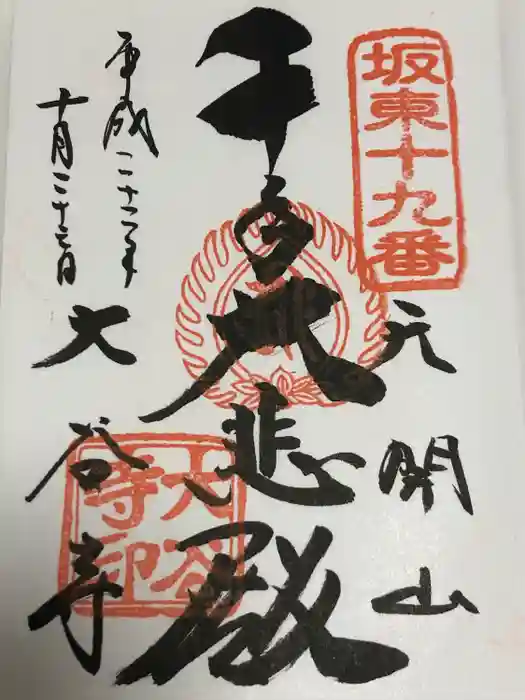 坂東十九番
天開山
千
悲殿
大谷寺
平成二十二年
十月二十三日
大谷寺印